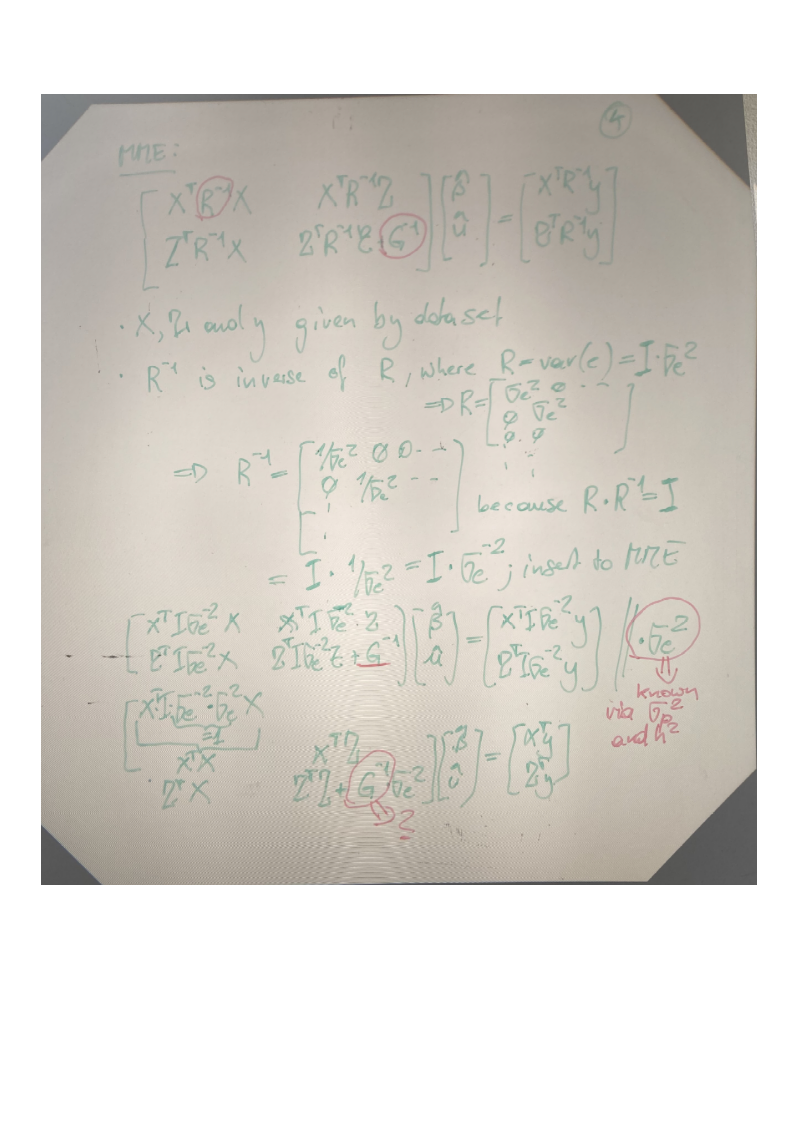 4
MME:
[ XᵀR⁻¹X XᵀR⁻¹Z ] [ β̂ ] = [ XᵀR⁻¹y ]
[ ZᵀR⁻¹X ZᵀR⁻¹Z+G⁻¹ ] [ û ] [ ZᵀR⁻¹y ]
· X, Z and y given by dataset
· R⁻¹ is inverse of R, where R = var(e) = I·σₑ²
⇒ R = [ σₑ² 0 · -
0 σₑ²
0 · 0 ]
⇒ R⁻¹ = [ 1/σₑ² 0 0 - -
0 1/σₑ² - - ] because R·R⁻¹ = I
= I · 1/σₑ² = I · σₑ⁻²; insert to MME
[ XᵀIσₑ⁻²X XᵀIσₑ⁻²·Z ] [ β̂ ] = [ XᵀIσₑ⁻²y ] // ·σₑ²
[ ZᵀIσₑ⁻²X ZᵀIσₑ⁻²Z + G⁻¹ ] [ û ] [ ZᵀIσₑ⁻²y ]
known
via σₚ²
and h²
[ XᵀI·σₑ⁻²·σₑ²X
=1
XᵀX XᵀZ ] [ β̂ ] = [ Xᵀy ]
ZᵀX ZᵀZ + G⁻¹σₑ² ] [ û ] [ Zᵀy ]
⇒ ?